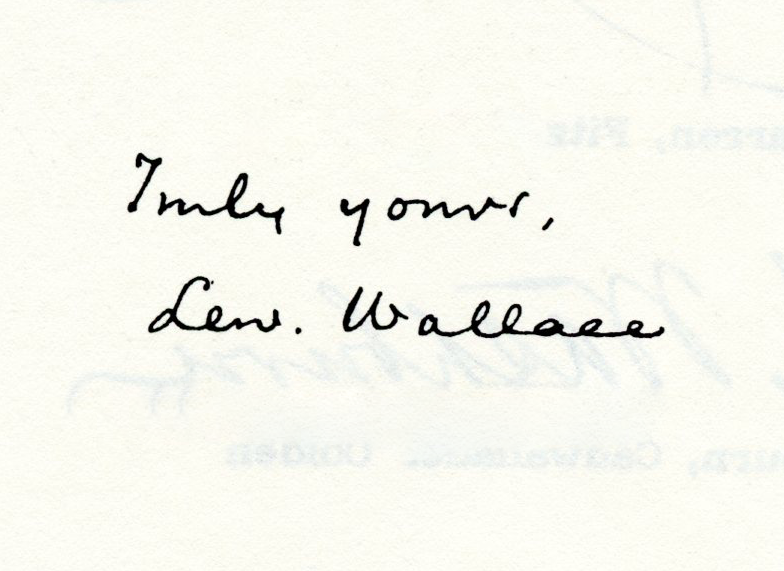 Truly yours,
Lew. Wallace